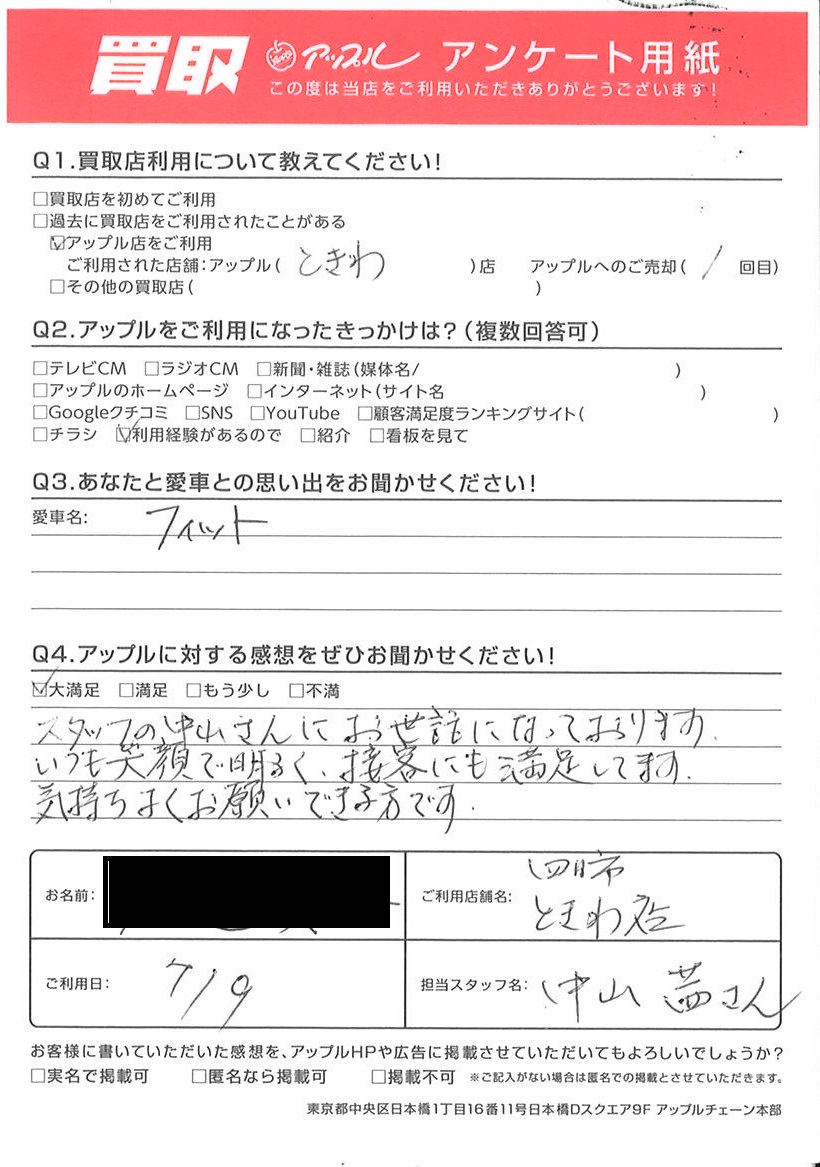 買取 アップル アンケート用紙
この度は当店をご利用いただきありがとうございます!
Q1.買取店利用について教えてください!
□買取店を初めてご利用
□過去に買取店をご利用されたことがある
☑アップル店をご利用
ご利用された店舗:アップル( ときわ )店 アップルへのご売却( 1 回目)
□その他の買取店( )
Q2.アップルをご利用になったきっかけは?(複数回答可)
□テレビCM □ラジオCM □新聞・雑誌(媒体名/ )
□アップルのホームページ □インターネット(サイト名 )
□Googleクチコミ □SNS □YouTube □顧客満足度ランキングサイト( )
□チラシ ☑利用経験があるので □紹介 □看板を見て
Q3.あなたと愛車との思い出をお聞かせください!
愛車名: フィット
Q4.アップルに対する感想をぜひお聞かせください!
☑大満足 □満足 □もう少し □不満
スタッフの中山さんにお世話になっております.
いつも笑顔で明るく、接客にも満足してます.
気持ちよくお願いできる方です.
お名前:
ご利用店舗名: 四日市
ときわ店
ご利用日: 7/9
担当スタッフ名: 中山 さん
お客様に書いていただいた感想を、アップルHPや広告に掲載させていただいてもよろしいでしょうか?
□実名で掲載可 □匿名なら掲載可 □掲載不可 ※ご記入がない場合は匿名での掲載とさせていただきます。
東京都中央区日本橋1丁目16番11号日本橋Dスクエア9F アップルチェーン本部